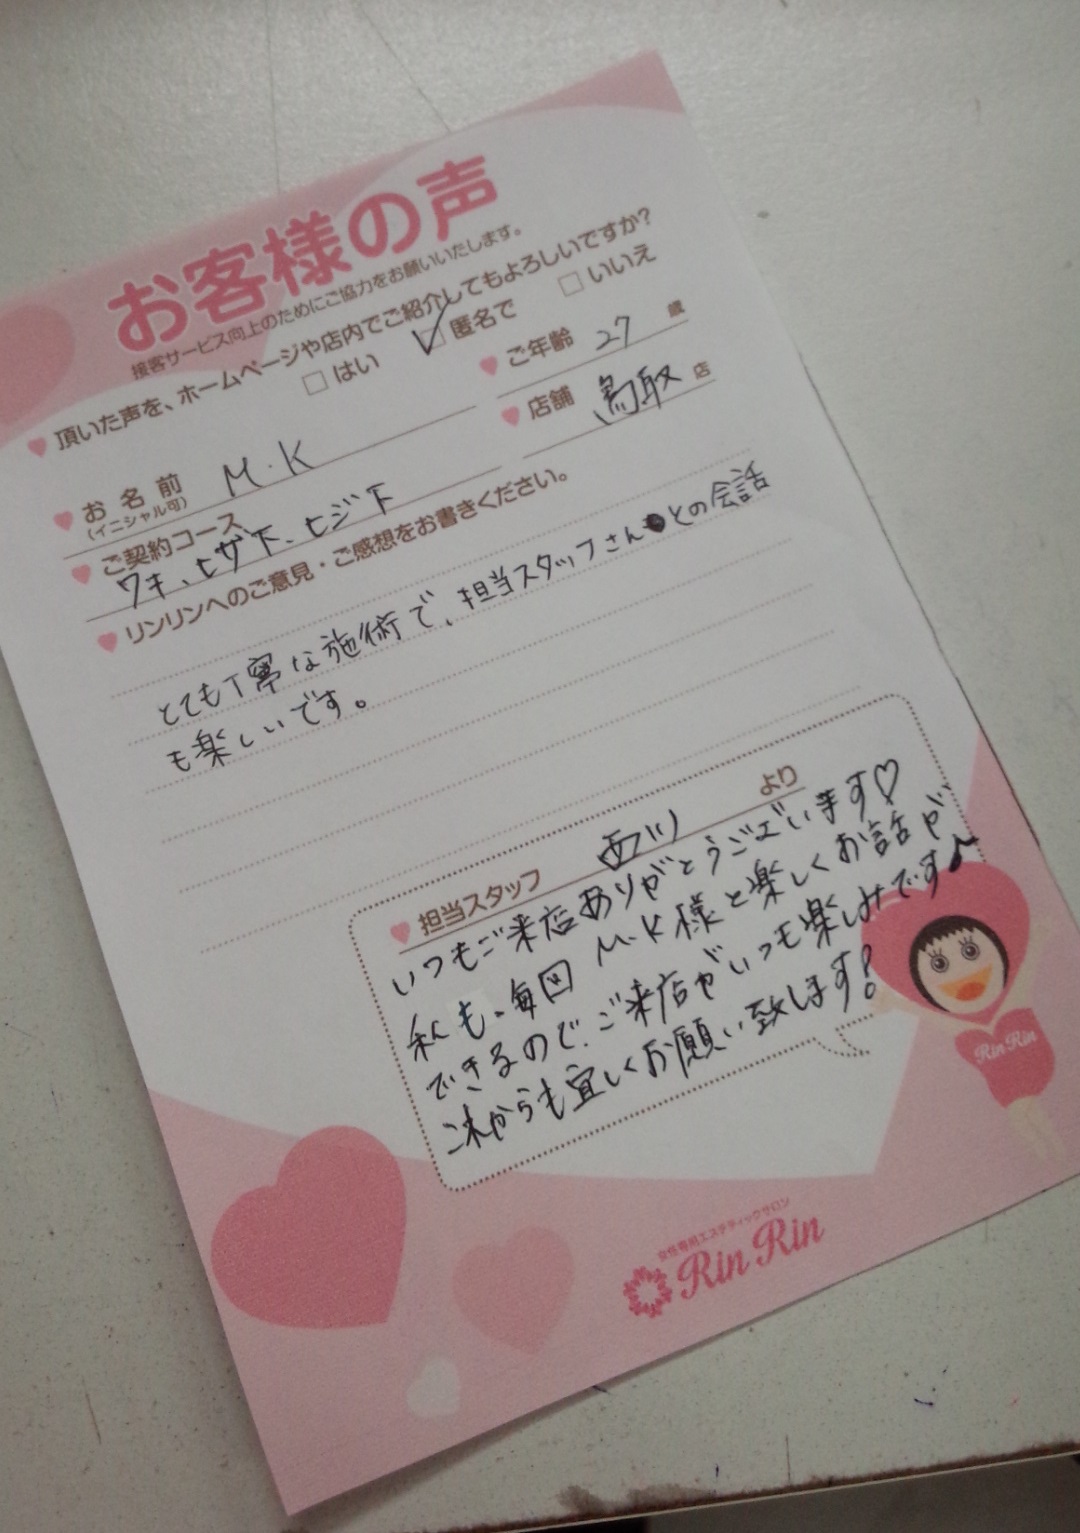 お客様の声
接客サービス向上のためにご協力をお願いいたします。
頂いた声を、ホームページや店内でご紹介してもよろしいですか?
□はい ☑匿名で □いいえ
お名前 M.K ご年齢 27 歳
(イニシャル可)
ご契約コース 店舗 鳥取 店
ワキ、ヒザ下、ヒジ下
リンリンへのご意見・ご感想をお書きください。
とても丁寧な施術で、担当スタッフさんとの会話
も楽しいです。
担当スタッフ より
いつもご来店ありがとうございます♡
私も、毎回 M.K様と楽しくお話が
できるので、ご来店がいつも楽しみです♪
これからも宜しくお願い致します!
RinRin
女性専用エステティックサロン
Rin Rin